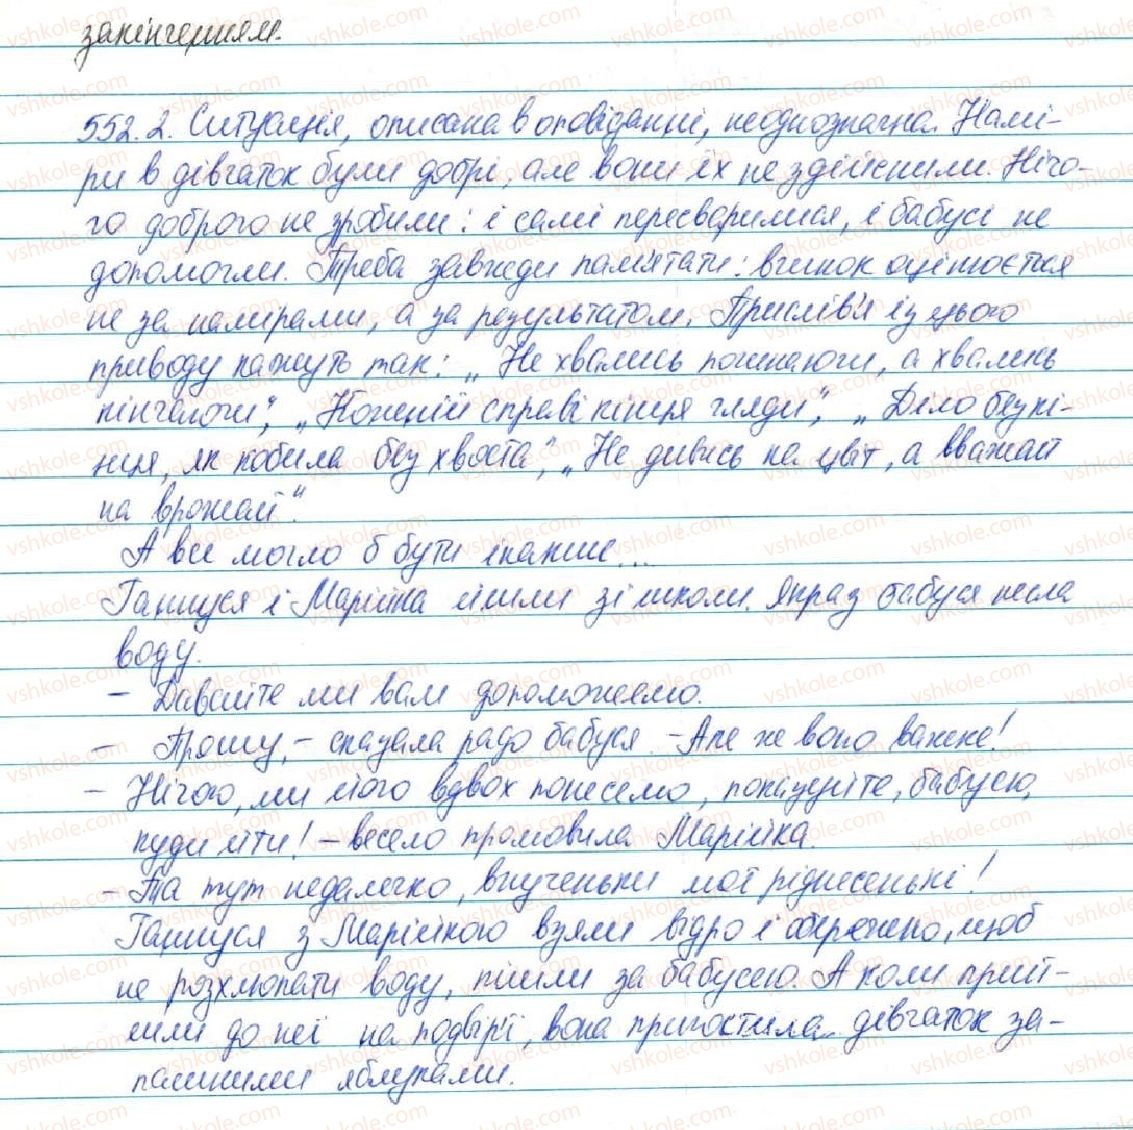 закінченням.
552.2. Ситуація, описана в оповіданні, неоднозначна. Намі-
ри в дівчаток були добрі, але вони їх не здійснили. Нічо-
го доброго не зробили: і самі пересварилися, і бабусі не
допомогли. Треба завжди пам'ятати: вчинок оцінюється
не за намірами, а за результатом. Прислів'я із цього
приводу кажуть так: „Не хвались починаючи, а хвались
кінчаючи", „Кожній справі кінця гляди", „Діло без кі-
нця, як кобила без хвоста", „Не дивись на цвіт, а вважай
на врожай".
А все могло б бути інакше...
Ганнуся і Марійка йшли зі школи. Якраз бабуся несла
воду.
- Давайте ми вам допоможемо.
- Прошу, - сказала радо бабуся. - Але ж воно важке!
- Нічого, ми його вдвох понесемо, показуйте, бабусю,
куди йти! - весело промовила Марійка.
- Та тут недалечко, внученьки мої ріднесенькі!
Ганнуся з Марійкою взяли відро і обережно, щоб
не розхлюпати воду, пішли за бабусею. А коли прий-
шли до неї на подвір'ї, вона пригостила дівчаток за-
пашними яблуками.